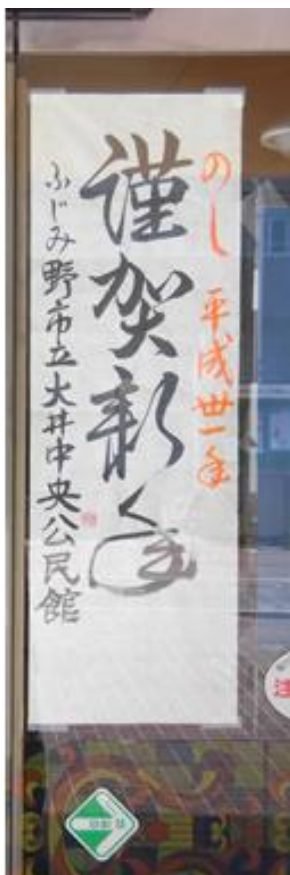 のし 平成丗一年
謹賀新年
ふじみ野市立大井中央公民館
注